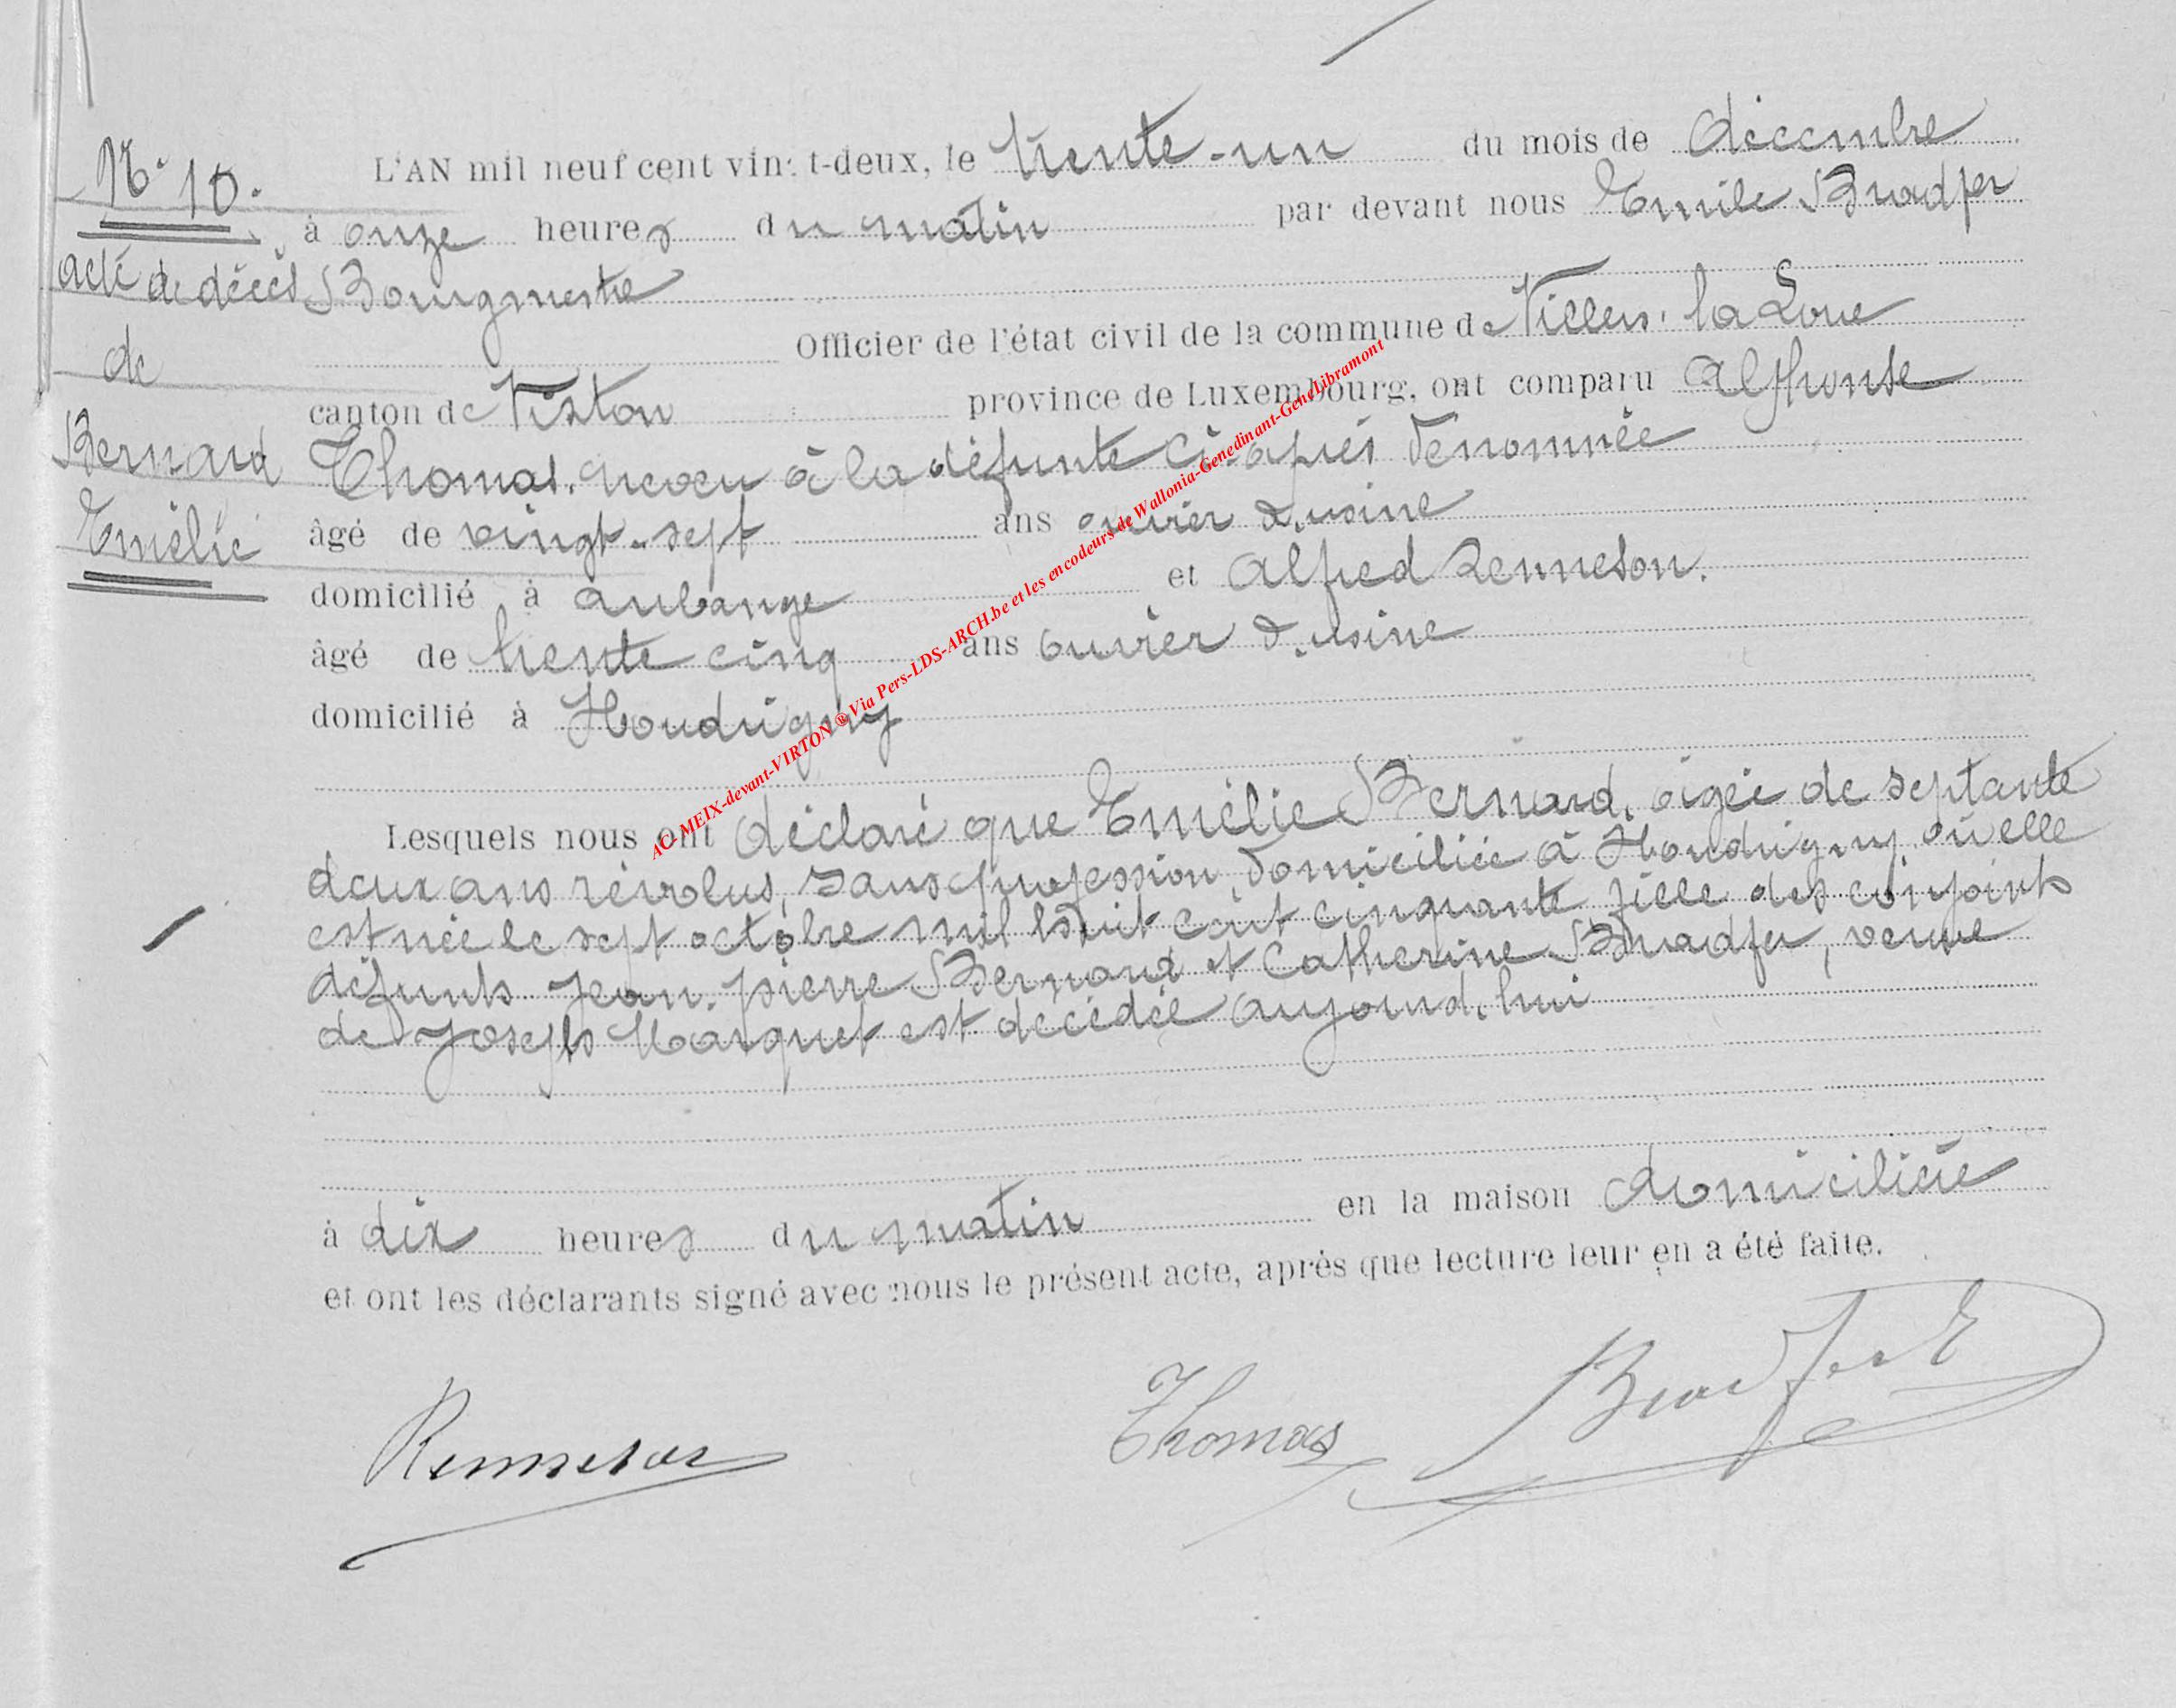 N° 10.
acte de décès
de
Bernard
Emélie
L'AN mil neuf cent vin t-deux, le trente-un du mois de décembre
à onze heures du matin par devant nous Emile Bradfer
Bourgmestre
Officier de l'état civil de la commune de Villers-la-Loue
canton de Virton province de Luxembourg, ont comparu Alphonse
Thomas, neveu à la défunte ci-après dénommée
âgé de vingt-sept ans ouvrier d'usine
domicilié à Aubange et Alfred Renneson.
âgé de trente cinq ans ouvrier d'usine
domicilié à Houdrigny
Lesquels nous ont déclaré que Emélie Bernard, âgée de septante
deux ans révolus, sans profession, domiciliée à Houdrigny où elle
est née le sept octobre mil huit cent cinquante fille des conjoints
défunts Jean-pierre Bernard et Catherine Bradfer, veuve
de Joseph Marquet est décédée aujourd'hui
à dix heures du matin en la maison domiciliée
et ont les déclarants signé avec nous le présent acte, après que lecture leur en a été faite.
Renneson Thomas Bradfer E
AC-MEIX-devant-VIRTON ® Via Pers-LDS-ARCH.be et les encodeurs de Wallonia-Genedinant-GeneLibramont